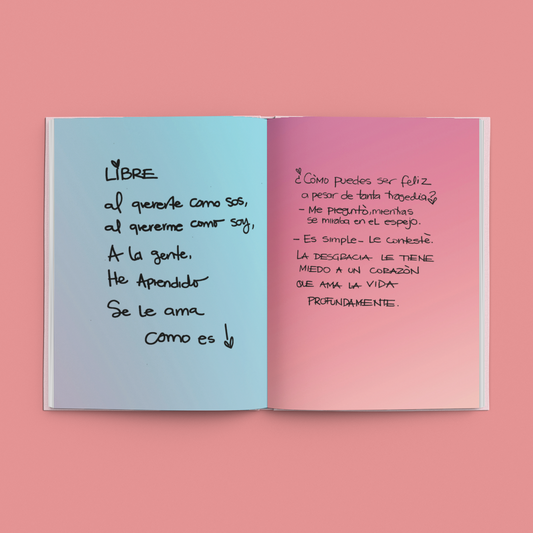 LIBRE
al quererte como sos,
al quererme como soy,
A la gente,
He Aprendido
Se le ama
como es!
¿Cómo puedes ser feliz
a pesar de tanta tragedia?
- Me preguntò, mientras
se miraba en el espejo.
- Es simple - Le contestè.
LA DESGRACIA LE TIENE
MIEDO A UN CORAZÒN
QUE AMA LA VIDA
PROFUNDAMENTE.